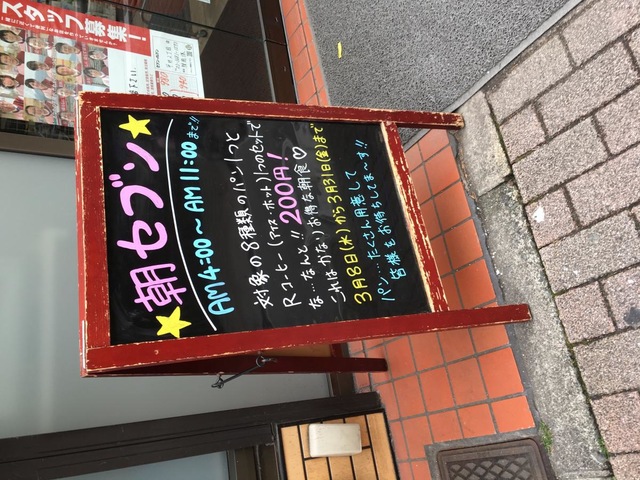 スタッフ募集!
朝セブン
AM 4:00～AM 11:00まで!!
対象の8種類のパン1つと
Rコーヒー(アイス・ホット)1つのセットで
な…なんと!! 200円!
これはかなりお得な朝食♡
3月8日(水)から3月31日(金)まで
パン…たくさん用意して
皆様をお待ちしてま〜す!!